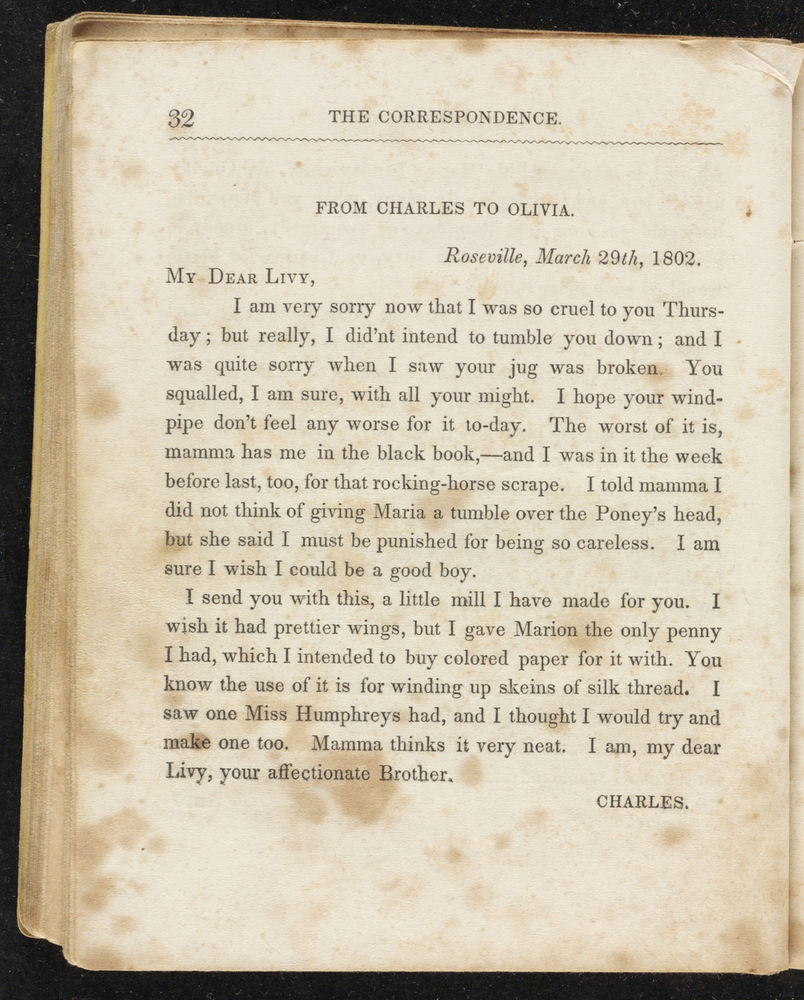 32
THE CORRESPONDENCE.
FROM CHARLES TO OLIVIA.
Roseville, March 29th, 1802.
My Dear Livy,
I am very sorry now that I was so cruel to you Thurs-
day; but really, I did'nt intend to tumble you down; and I
was quite sorry when I saw your jug was broken. You
squalled, I am sure, with all your might. I hope your wind-
pipe don't feel any worse for it to-day. The worst of it is,
mamma has me in the black book,—and I was in it the week
before last, too, for that rocking-horse scrape. I told mamma I
did not think of giving Maria a tumble over the Poney's head,
but she said I must be punished for being so careless. I am
sure I wish I could be a good boy.
I send you with this, a little mill I have made for you. I
wish it had prettier wings, but I gave Marion the only penny
I had, which I intended to buy colored paper for it with. You
know the use of it is for winding up skeins of silk thread. I
saw one Miss Humphreys had, and I thought I would try and
make one too. Mamma thinks it very neat. I am, my dear
Livy, your affectionate Brother.
CHARLES.